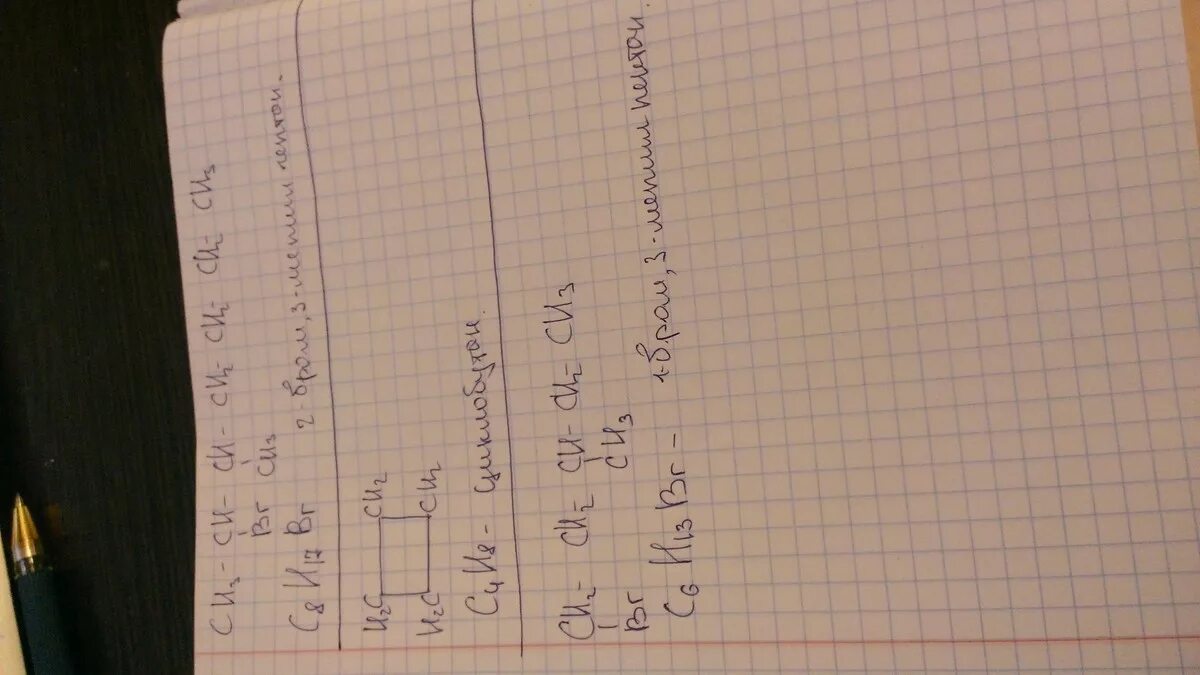 CH₃ - CH - CH - CH₂ - CH₂ - CH₂ - CH₃
Br CH₃
C₈H₁₇Br 2-бром, 3-метил гептан.
H₂C CH₂
H₂C CH₂
C₄H₈ - циклобутан.
CH₂ - CH₂ - CH - CH₂ - CH₃
Br CH₃
C₆H₁₃Br - 1-бром, 3-метил пентан.